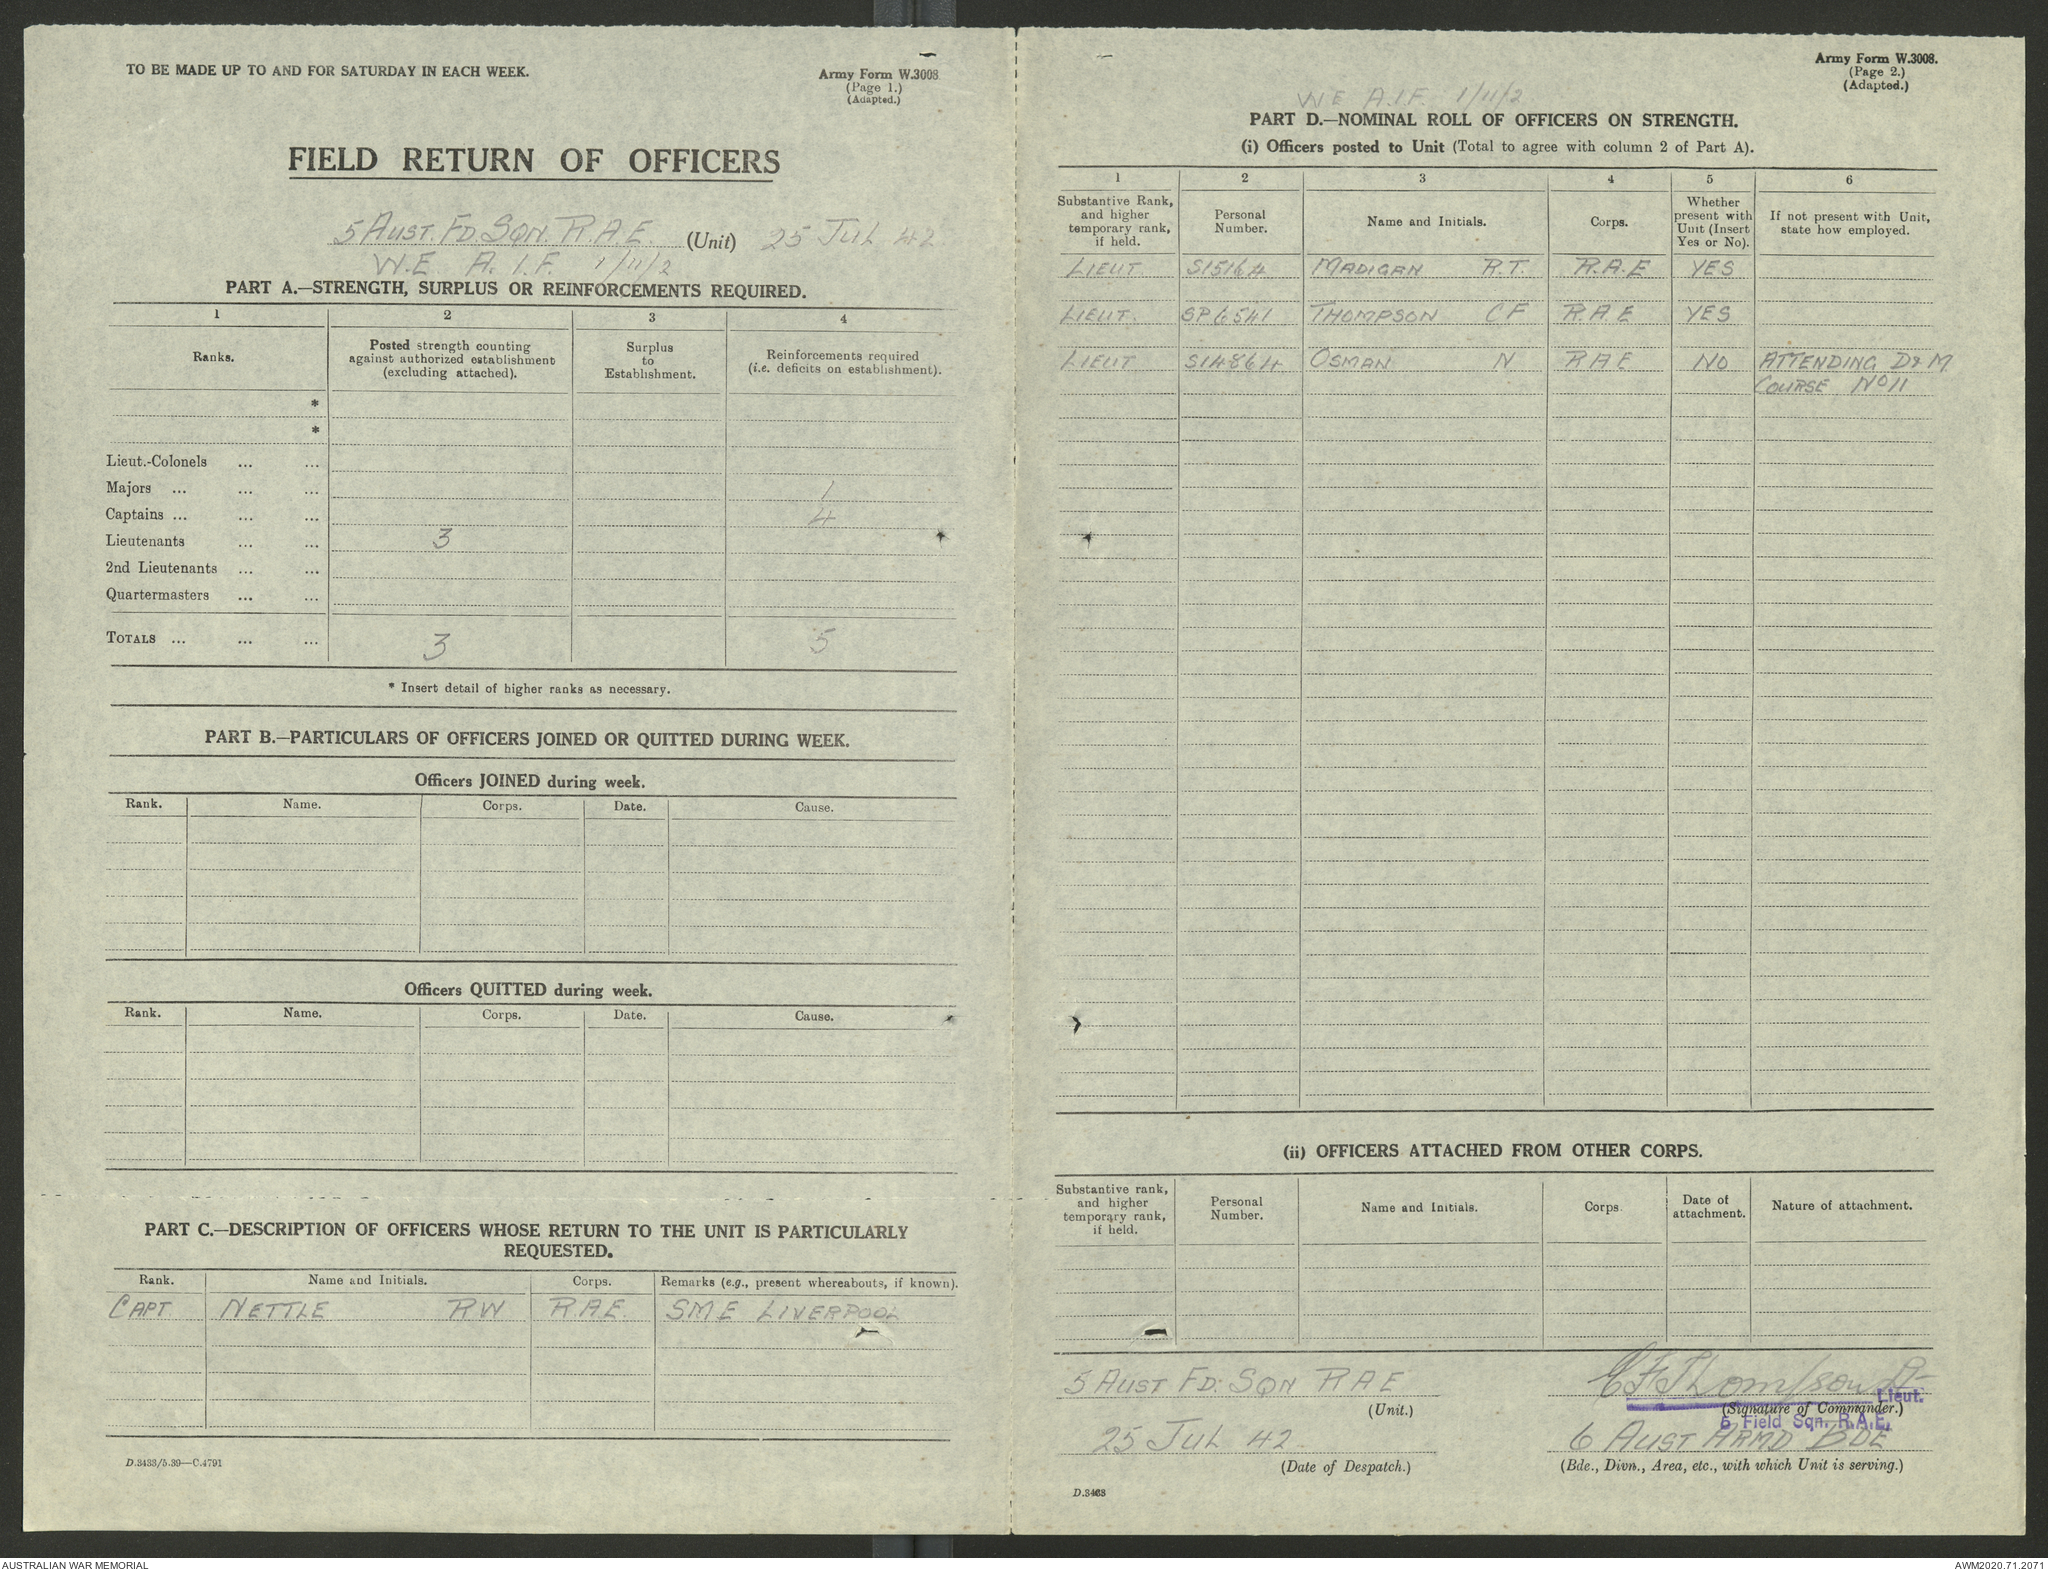 TO BE MADE UP TO AND FOR SATURDAY IN EACH WEEK.
Army Form W.3008
(Page 1.)
(Adapted.)
FIELD RETURN OF OFFICERS
5 AUST. FD. SQN. R A E (Unit) 25 JUL 42
W.E A. I. F. 1/11/2
PART A.—STRENGTH, SURPLUS OR REINFORCEMENTS REQUIRED.
1 2 3 4
Ranks.
Posted strength counting against authorized establishment (excluding attached).
Surplus to Establishment.
Reinforcements required (i.e. deficits on establishment).
*
*
Lieut.-Colonels ... ...
Majors ... ... ... 1
Captains ... ... ... 4
Lieutenants ... ... 3
2nd Lieutenants ... ...
Quartermasters ... ...
TOTALS ... ... ... 3 5
* Insert detail of higher ranks as necessary.
PART B.—PARTICULARS OF OFFICERS JOINED OR QUITTED DURING WEEK.
Officers JOINED during week.
Rank. Name. Corps. Date. Cause.
Officers QUITTED during week.
Rank. Name. Corps. Date. Cause.
PART C.—DESCRIPTION OF OFFICERS WHOSE RETURN TO THE UNIT IS PARTICULARLY
REQUESTED.
Rank. Name and Initials. Corps. Remarks (e.g., present whereabouts, if known).
CAPT. NETTLE RW R.A.E. SME LIVERPOOL
D.3433/5.39—C.4791
Army Form W.3008.
(Page 2.)
(Adapted.)
WE A.I.F. 1/11/2
PART D.—NOMINAL ROLL OF OFFICERS ON STRENGTH.
(i) Officers posted to Unit (Total to agree with column 2 of Part A).
1 2 3 4 5 6
Substantive Rank, and higher temporary rank, if held.
Personal Number.
Name and Initials.
Corps.
Whether present with Unit (Insert Yes or No).
If not present with Unit, state how employed.
LIEUT S15164 MADIGAN R.T. R.A.E YES
LIEUT. SP6541 THOMPSON CF R.A.E YES
LIEUT S14864 OSMAN N RAE NO ATTENDING D&M
COURSE No 11
(ii) OFFICERS ATTACHED FROM OTHER CORPS.
Substantive rank, and higher temporary rank, if held.
Personal Number.
Name and Initials.
Corps.
Date of attachment.
Nature of attachment.
5 AUST FD: SQN RAE
(Unit.)
CF Thompson Lt
Lieut.
(Signature of Commander.)
5 Field Sqn. R.A.E.
25 JUL 42
(Date of Despatch.)
6 AUST ARMD BDE
(Bde., Divn., Area, etc., with which Unit is serving.)
D.3433
AUSTRALIAN WAR MEMORIAL
AWM2020.71.2071